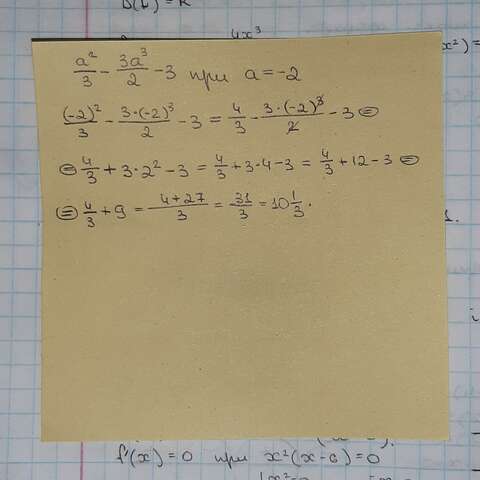 D(f) = R
4x³
x²) =
a²/3 - 3a³/2 - 3 при a = -2
(-2)²/3 - 3·(-2)³/2 - 3 = 4/3 - 3·(-2)³/2 - 3 =
= 4/3 + 3·2² - 3 = 4/3 + 3·4 - 3 = 4/3 + 12 - 3 =
= 4/3 + 9 = 4+27/3 = 31/3 = 10 1/3.
f'(x) = 0 при x²(x-6) = 0